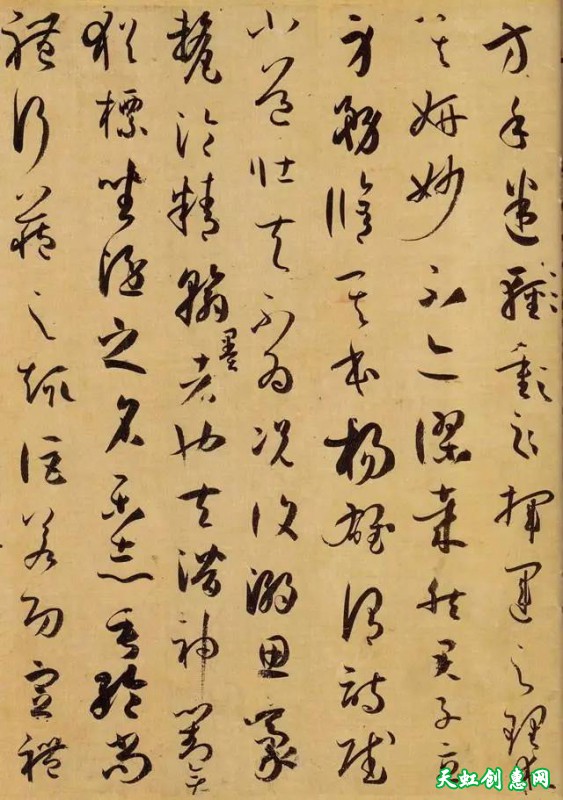 方手迷揮運之理求
其妍妙不亦謬哉然君子立
身務修其本楊雄謂詩賦
小道壯夫不為況復溺思豪
釐淪精翰墨者也夫潛神對弈
猶標坐隱之名樂志垂綸尚
體行藏之趣詎若功宣禮
天虹创惠网